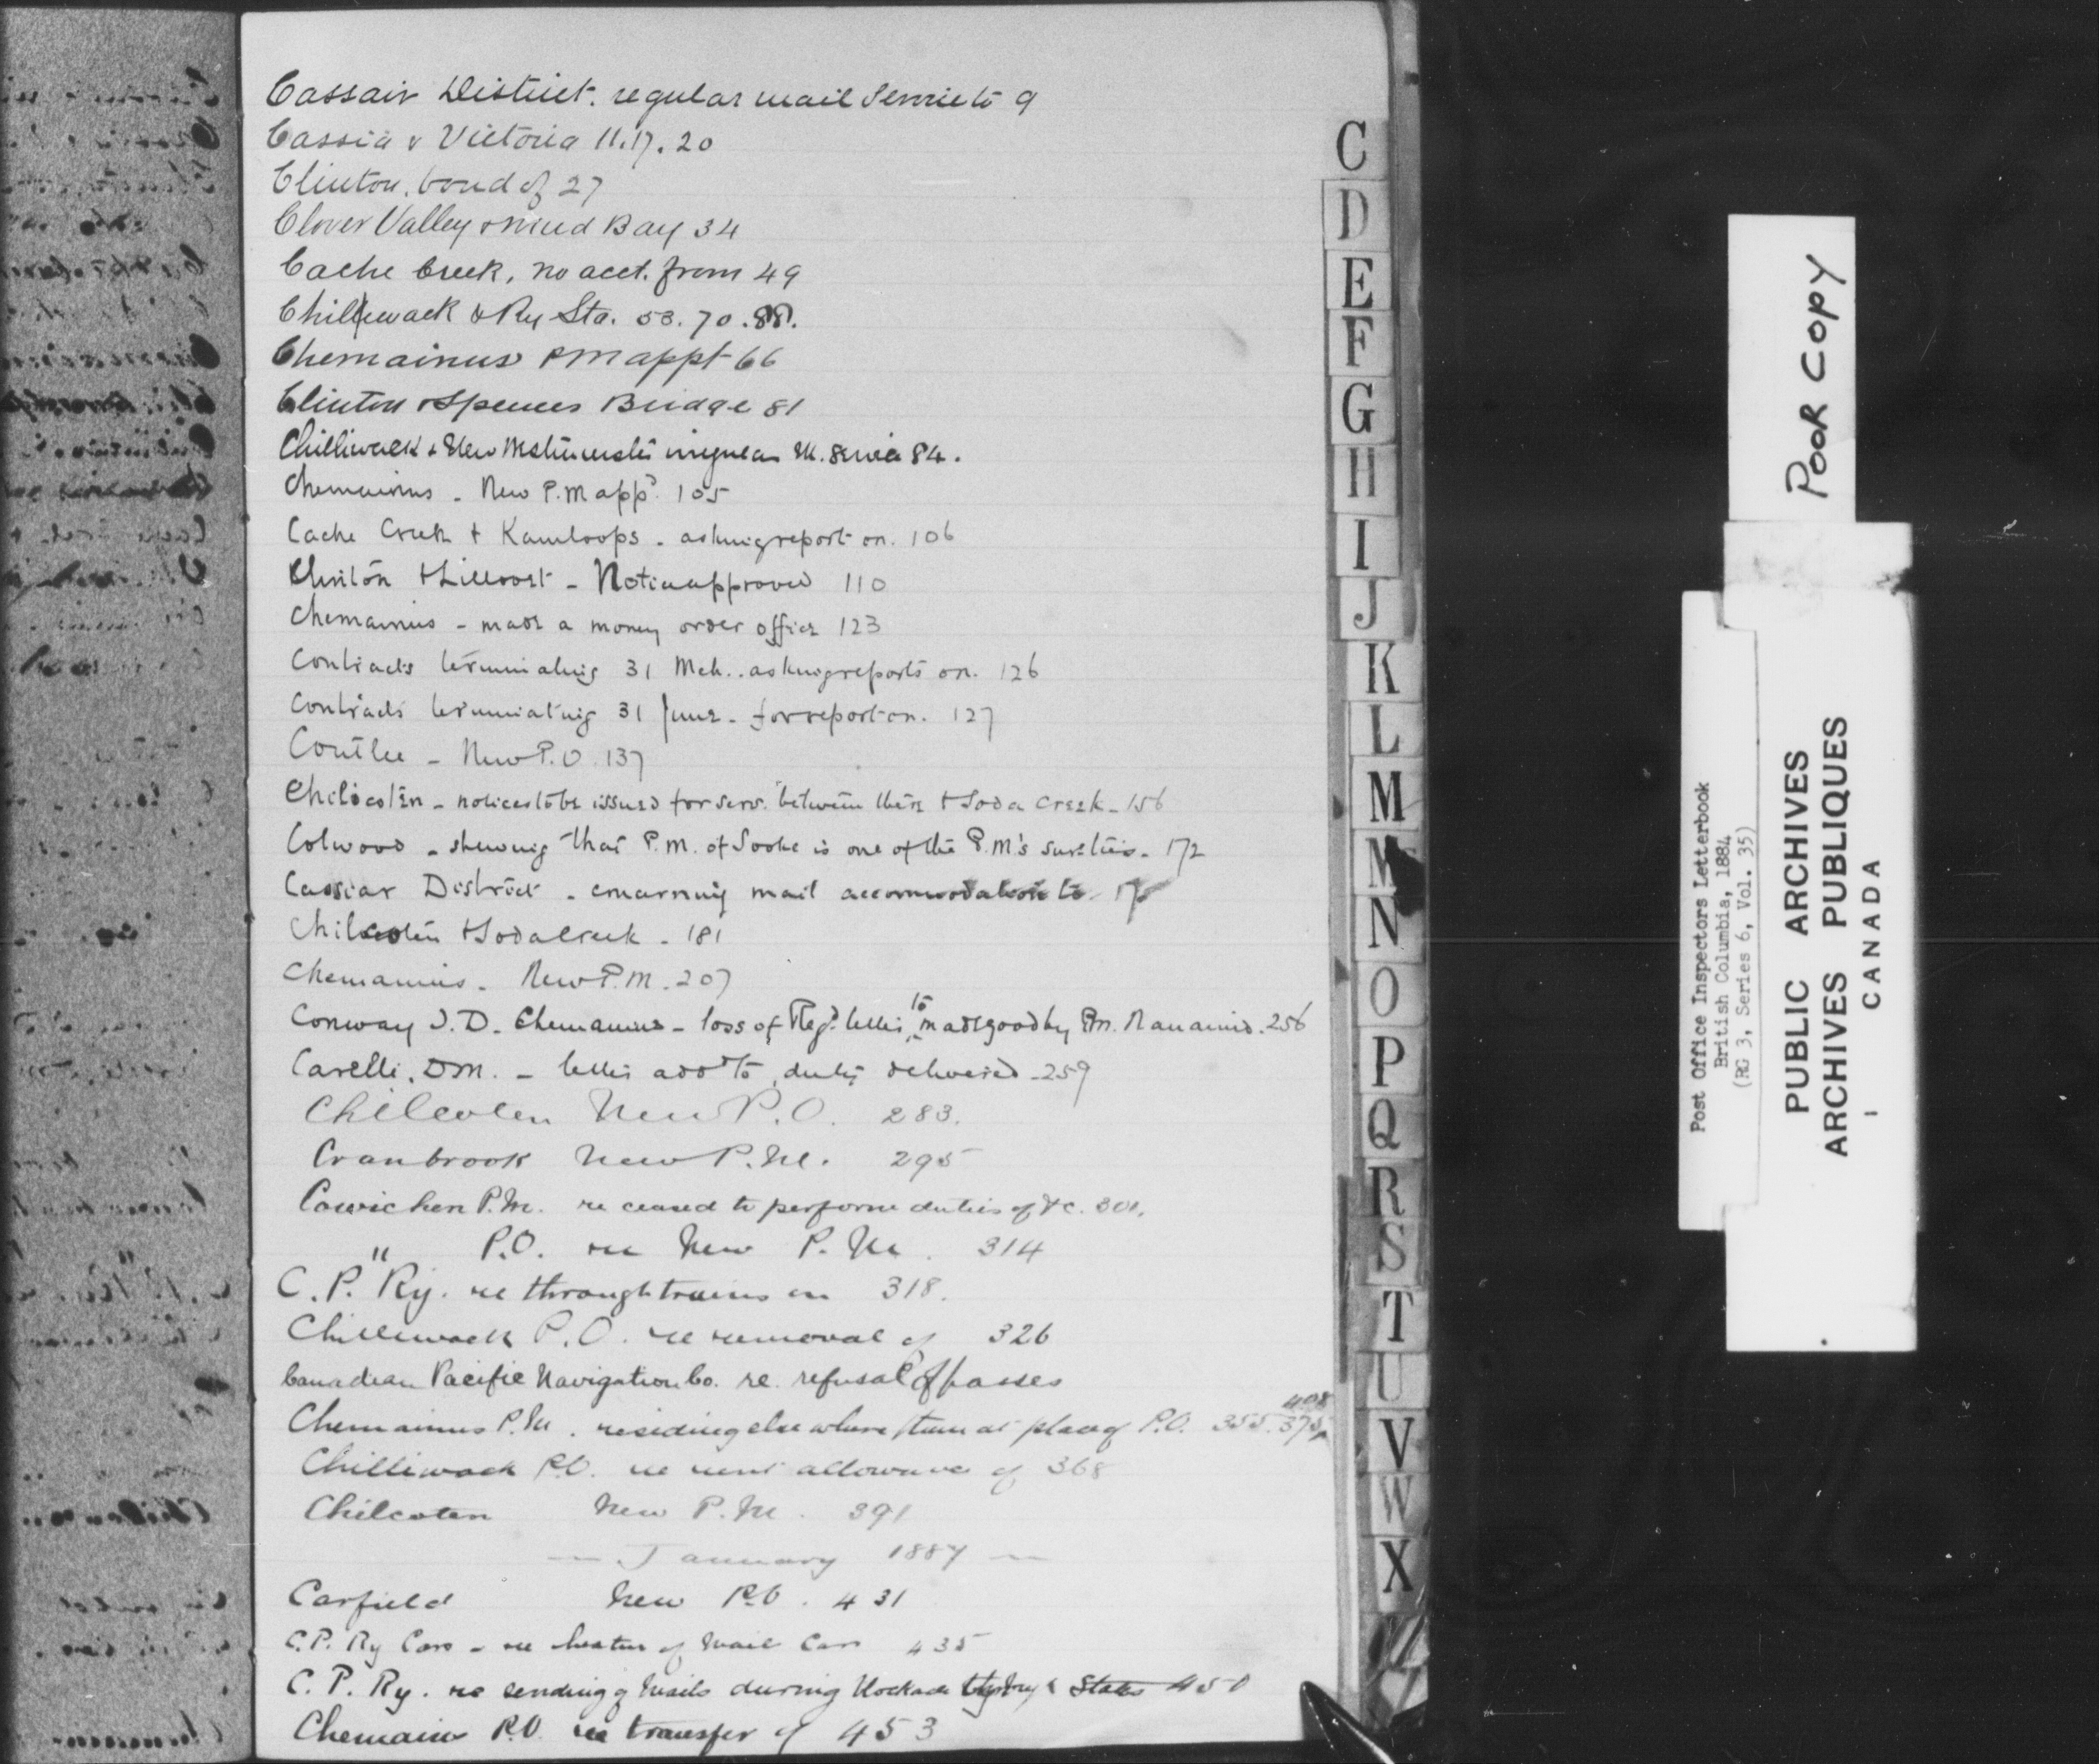 Cassair District. regular mail Service to 9
Cassia & Victoria 11.17.20
Clinton. bond of 27
Clover Valley & Mud Bay 34
Cache Creek, no acct. from 49
Chilliwack & Ry Sta. 53. 70. 88.
Chemainus P M appt 66
Clinton & Spences Bridge 81
Chilliwack & New Westminster irregular M. Service 84.
Chemainus - New P.M app? 105
Cache Creek & Kamloops - asking report on. 106
Clinton & Lillooet - Notice approved 110
Chemainus - made a money order office 123
Contracts terminating 31 Mch.. asking reports on. 126
Contracts terminating 31 June - for report on. 127
Coutlee - New P.O. 137
Chilcotin - notices to be issued for serv. between there & Soda Creek - 156
Colwood - shewing that P.M. of Sooke is one of the P.M's sureties - 172
Cassiar District - concerning mail accommodation to -
Chilcotin & Soda Creek - 181
Chemainus - New P.M. 207
Conway J. D. Chemainus - loss of Regd letter to made good by P.M. Nanaimo. 256
Carelli, D M. - letter addd to, duly delivered - 259
Chilcoten New P.O. 283.
Cranbrook New P.M. 295
Cowichen P.M. re ceased to perform duties of &c. 301.
" P.O. re New P.M. 314
C. P. Ry. re through trains on 318.
Chilliwack P.O. re removal of 326
Canadian Pacific Navigation Co. re. refusal of passes
Chemainus P.M. residing elsewhere than at place of P.O. 355. 375, 408
Chilliwack P.O. re rent allowance of 368
Chilcoten New P.M. 391
— January 1887 —
Corfield New P.O. 431
C.P. Ry Cars - re heater of Mail Car 435
C. P. Ry. re sending of Mails during blockade States 450
Chemains P.O. re transfer of 453
C
D
E
F
G
H
I
J
K
L
M
M
N
O
P
Q
R
S
T
U
V
W
X
POOR COPY
Post Office Inspectors Letterbook
British Columbia, 1884
(RG 3, Series 6, Vol. 35)
PUBLIC ARCHIVES
ARCHIVES PUBLIQUES
CANADA